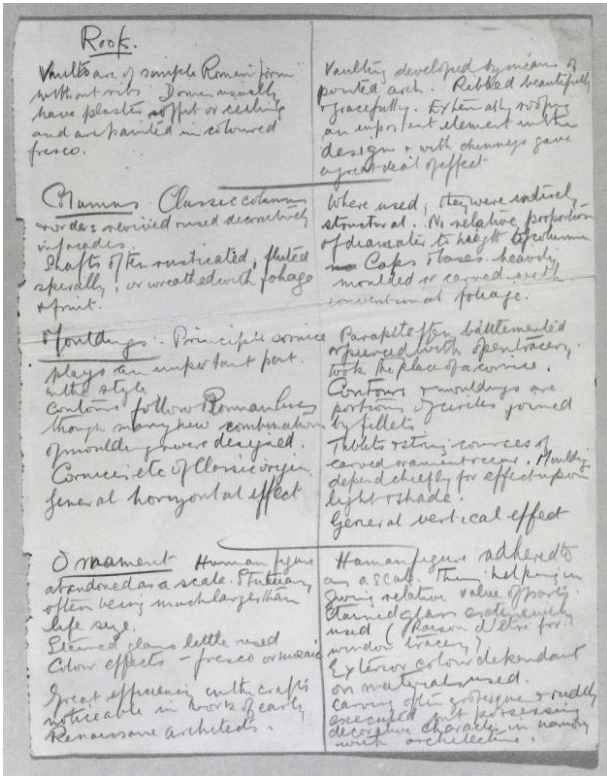 Roof.
Vaults are of simple Roman form
without ribs. Domes usually
have plaster soffit or ceiling
and are painted in coloured
fresco.
Columns. Classic columns
& orders revived & used decoratively
in facades.
Shafts often rusticated, fluted
spirally, or wreathed with foliage
& fruit.
Mouldings. Principle cornice
plays an important part
in the style
contours follow Roman lines
though many new combinations
of mouldings were designed.
Cornices etc of Classic origin
General horizontal effect
Ornament Human figure
abandoned as a scale. Statuary
often being much larger than
life size.
Stained glass little used
Colour effects – fresco or mosaic
Great efficiency in the crafts
noticeable in work of early
Renaissance architects.
Vaulting developed by means of
pointed arch. Ribbed beautifully
& gracefully. Externally roofing
an important element in the
design & with chimneys gave
a great deal of effect
Where used, they were entirely
structural. No relative proportion
of diameter to height of column
Caps & bases heavily
moulded or carved with
conventional foliage.
Parapet often battlemented
or pierced with open tracery.
took the place of a cornice.
Contours & mouldings are
portions of circles joined
by fillets.
Tablets & string courses of
carved ornament occur. Mouldings
depend chiefly for effect upon
light & shade.
General vertical effect
Human figure adhered to
as a scale. Thus helping in
giving relative value of parts.
Stained glass extensively
used (Raison d'etre for
window tracery)
Exterior colour dependant
on materials used.
carving often grotesque & rudely
executed but possessing
decorative character in harmony
with architecture.